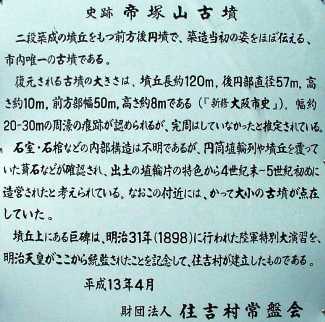 史跡 帝塚山古墳
二段築成の墳丘をもつ前方後円墳で、築造当初の姿をほぼ伝える、
市内唯一の古墳である。
復元される古墳の大きさは、墳丘長約120m，後円部直径57m，高
さ約10m，前方部幅50m，高さ約8mである（『新修大阪市史』）．幅約
20-30mの周濠の痕跡が認められるが、完周はしていなかったと推定されている。
石室・石棺などの内部構造は不明であるが、円筒埴輪列や墳丘を覆って
いた葺石などが確認され、出土の埴輪片の特色から4世紀末～5世紀初めに
造営されたと考えられている。なおこの付近には、かつて大小の古墳が点在
していた。
墳丘上にある巨碑は、明治31年（1898）に行われた陸軍特別大演習を、
明治天皇がここから統監されたことを記念して、住吉村が建立したものである。
平成13年4月
財団法人 住吉村常盤会